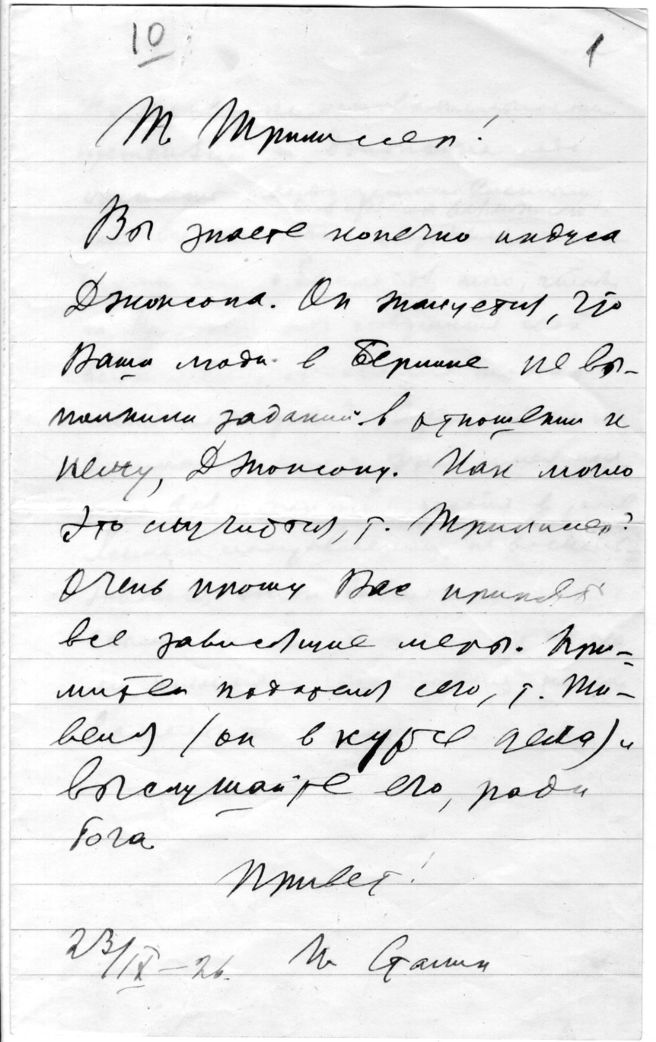 10
1
Т. Трилиссер!
Вы знаете конечно индуса
Джонсона. Он жалуется, что
Ваши люди в Берлине не вы-
полнили заданий в отношении к
нему, Джонсону. Как могло
это случиться, т. Трилиссер?
Очень прошу Вас принять
все зависящие меры. При-
мите подателя сего, т.
(он в курсе дела) и
выслушайте его, ради
бога.
Привет!
23/IX–26. И. Сталин